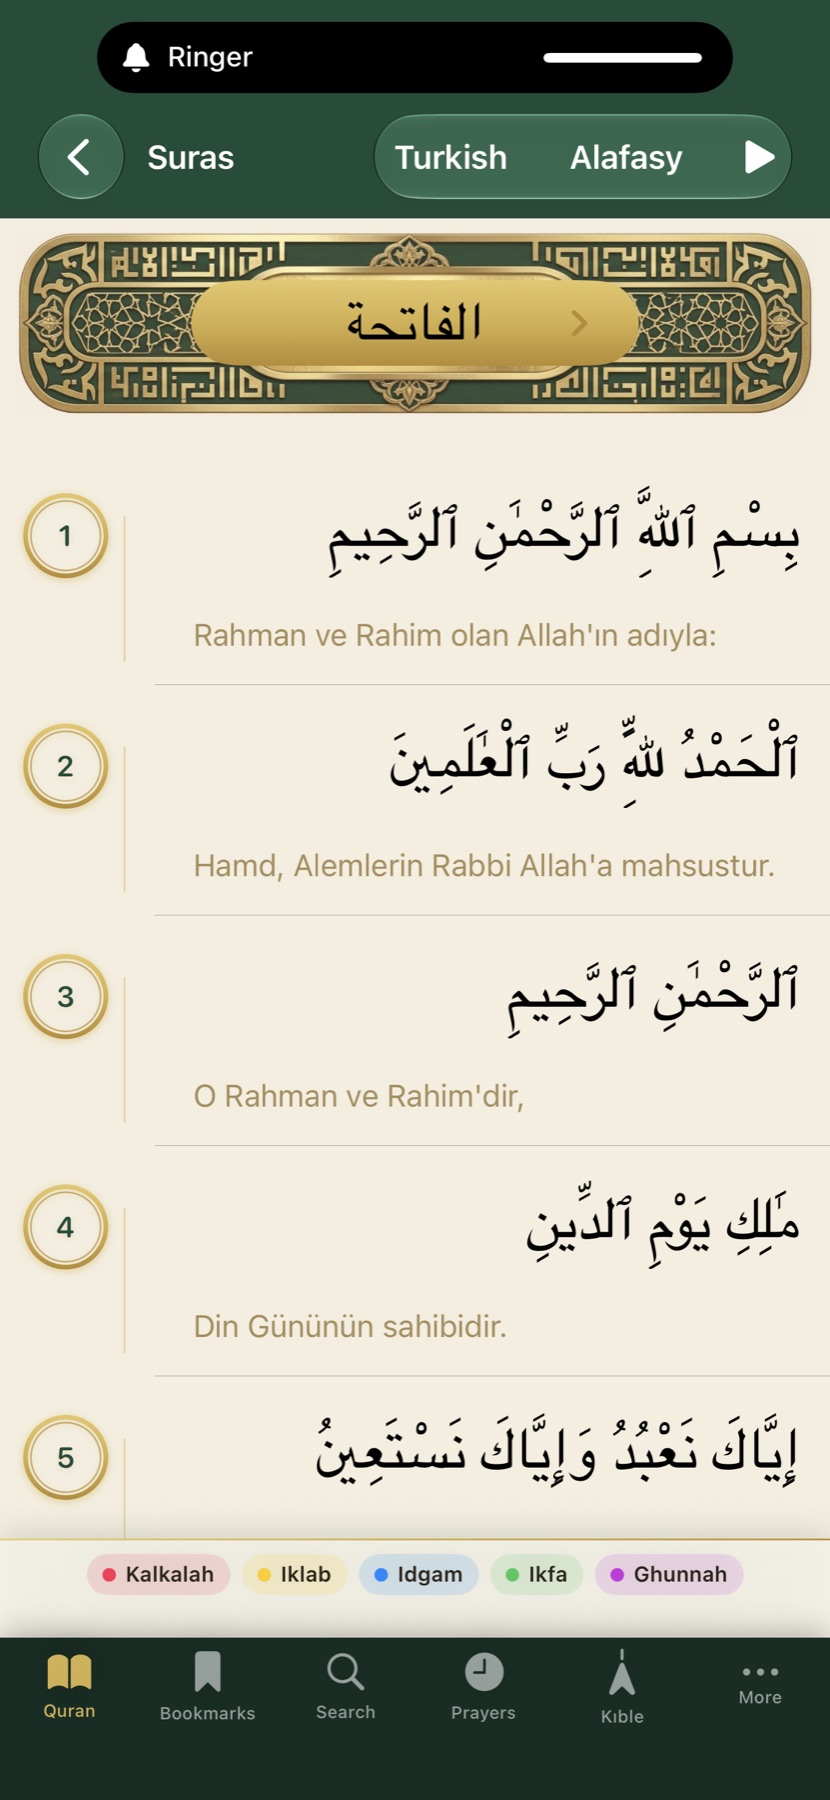 Ringer
Suras
Turkish Alafasy
الفاتحة
1
بِسْمِ ٱللَّهِ ٱلرَّحْمَٰنِ ٱلرَّحِيمِ
Rahman ve Rahim olan Allah'ın adıyla:
2
ٱلْحَمْدُ لِلَّهِ رَبِّ ٱلْعَٰلَمِينَ
Hamd, Alemlerin Rabbi Allah'a mahsustur.
3
ٱلرَّحْمَٰنِ ٱلرَّحِيمِ
O Rahman ve Rahim'dir,
4
مَٰلِكِ يَوْمِ ٱلدِّينِ
Din Gününün sahibidir.
5
إِيَّاكَ نَعْبُدُ وَإِيَّاكَ نَسْتَعِينُ
Kalkalah Iklab Idgam Ikfa Ghunnah
Quran Bookmarks Search Prayers Kıble More